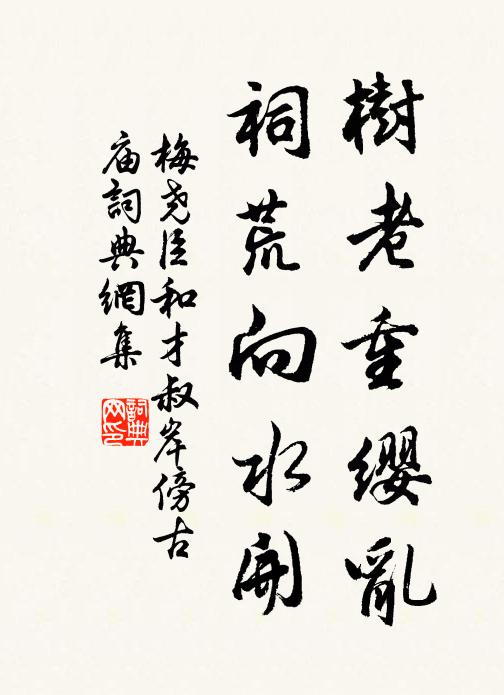 樹老重纓亂
祠荒向水開
梅堯臣和才叔岸傍古
庙詞典網集
詞典
网印